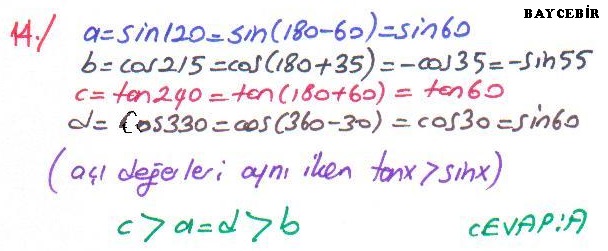 BAYCEBİR
14./ a=sin120=sin(180-60)=sin60
b=cos215=cos(180+35)=-cos35=-sin55
c=tan240=tan(180+60)=tan60
d=Cos330=cos(360-30)=cos30=sin60
(açı değerleri aynı iken tanx>sinx)
c>a=d>b
CEVAP:A